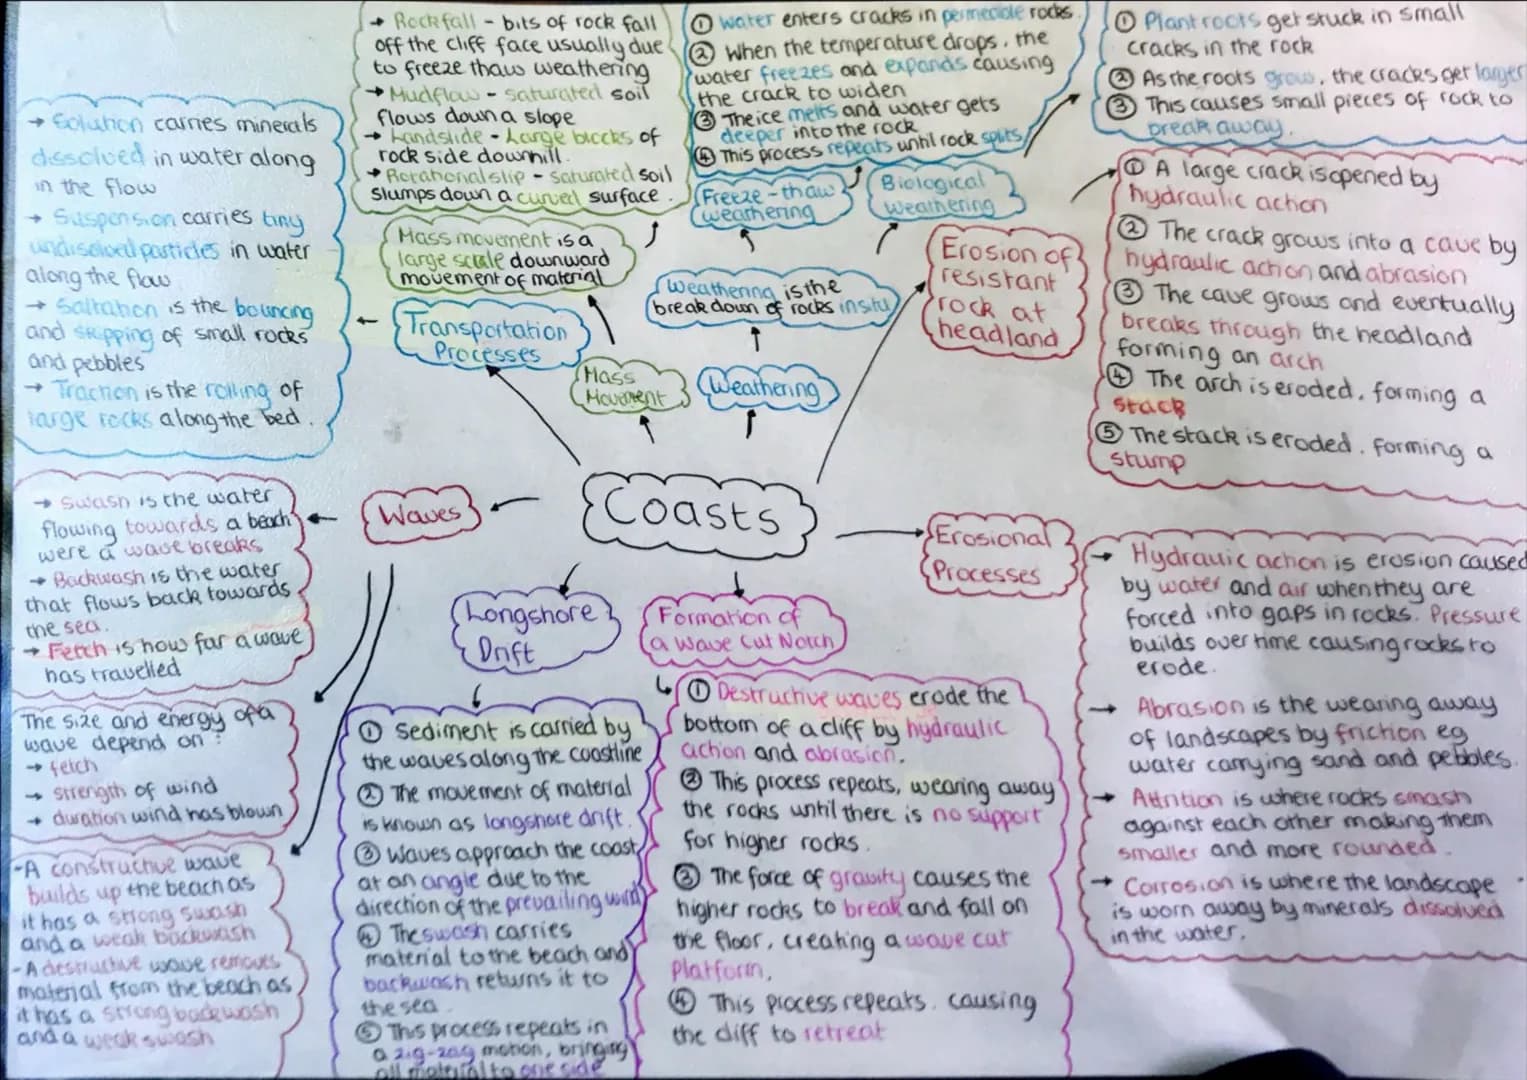 Coasts
→ Rockfall - bits of rock fall
off the cliff face usually due
to freeze thaw weathering
→ Mudflow - saturated soil
flows down a slope
→ Landslide - Large blocks of
rock side downhill.
→ Rotational slip - saturated soil
slumps down a curved surface.
Mass movement is a
large scale downward
movement of material
Mass
Movement
① Water enters cracks in permeable rocks.
② When the temperature drops, the
water freezes and expands causing
the crack to widen
③ The ice melts and water gets
deeper into the rock
④ This process repeats until rock splits
Freeze-thaw
weathering
① Plant roots get stuck in small
cracks in the rock
② As the roots grow, the cracks get larger
③ This causes small pieces of rock to
break away.
Biological
weathering
Weathering is the
break down of rocks in situ
Weathering
① A large crack is opened by
hydraulic action
② The crack grows into a cave by
hydraulic action and abrasion
③ The cave grows and eventually
breaks through the headland
forming an arch
④ The arch is eroded, forming a
stack
⑤ The stack is eroded, forming a
stump
Erosion of
resistant
rock at
headland
→ Solution carries minerals
dissolved in water along
in the flow
→ Suspension carries tiny
undissolved particles in water
along the flow
→ Saltation is the bouncing
and skipping of small rocks
and pebbles
→ Traction is the rolling of
large rocks along the bed.
Transportation
Processes
→ Swash is the water
flowing towards a beach
were a wave breaks
→ Backwash is the water
that flows back towards
the sea.
→ Fetch is how far a wave
has travelled
Waves
The size and energy of a
wave depend on:
→ fetch
→ strength of wind
→ duration wind has blown
- A constructive wave
builds up the beach as
it has a strong swash
and a weak backwash
- A destructive wave removes
material from the beach as
it has a strong backwash
and a weak swash
Longshore
Drift
① Sediment is carried by
the waves along the coastline
② The movement of material
is known as longshore drift.
③ Waves approach the coast
at an angle due to the
direction of the prevailing wind
④ The swash carries
material to the beach and
backwash returns it to
the sea.
⑤ This process repeats in
a zig-zag motion, bringing
all material to one side
Formation of
a Wave Cut Notch
① Destructive waves erode the
bottom of a cliff by hydraulic
action and abrasion.
② This process repeats, wearing away
the rocks until there is no support
for higher rocks.
③ The force of gravity causes the
higher rocks to break and fall on
the floor, creating a wave cut
platform.
④ This process repeats, causing
the cliff to retreat
Erosional
Processes
→ Hydrauic action is erosion caused
by water and air when they are
forced into gaps in rocks. Pressure
builds over time causing rocks to
erode.
→ Abrasion is the wearing away
of landscapes by friction eg
water carrying sand and pebbles.
→ Attrition is where rocks smash
against each other making them
smaller and more rounded.
→ Corrosion is where the landscape
is worn away by minerals dissolved
in the water.